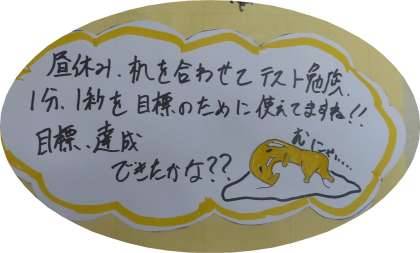 昼休み、机を合わせてテスト勉強、
1分、1秒を目標のために使えてますね!!
目標、達成
できたかな??
むにゃ....